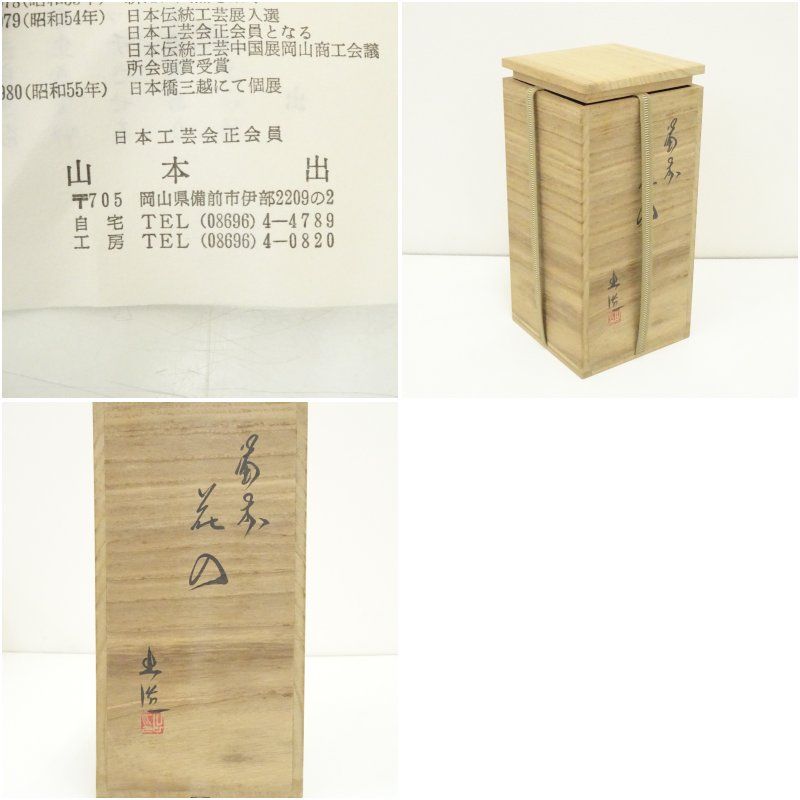 978(昭和53年)
979(昭和54年) 日本伝統工芸展入選
日本工芸会正会員となる
日本伝統工芸中国展岡山商工会議
所会頭賞受賞
980(昭和55年) 日本橋三越にて個展
日本工芸会正会員
山本 出
〒705 岡山県備前市伊部2209の2
自宅 TEL (08696) 4-4789
工房 TEL (08696) 4-0820
備前
備前
花入
出造
出造